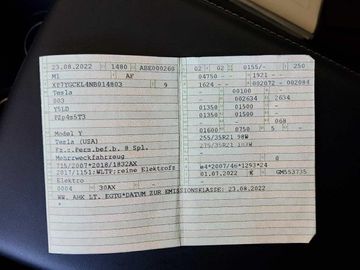 23.08.2022 1480 ABK000260
02 02 0155/- 250
M1 AF
04750 - 1921 -
9
1624 - - 002072 - 002084
Tesla
- 00100 -
003
- 002634 2634
Y5LD
01350 01500 -
01350 01500 -
- - 068
Model Y
01600 0750 5 -
Tesla (USA)
255/35R21 98W
Fz.z.Pers.bef.b. 8 Spl.
275/35R21 102W
Mehrzweckfahrzeug
715/2007*2018/1832AX
2017/1151;WLTP;reine Elektrofz
e4*2007/46*1293*24
Elektro
01.07.2022 K GM553735
0004 30AX -
WW. AHK LT. EGTG*DATUM ZUR EMISSIONSKLASSE: 23.08.2022
*